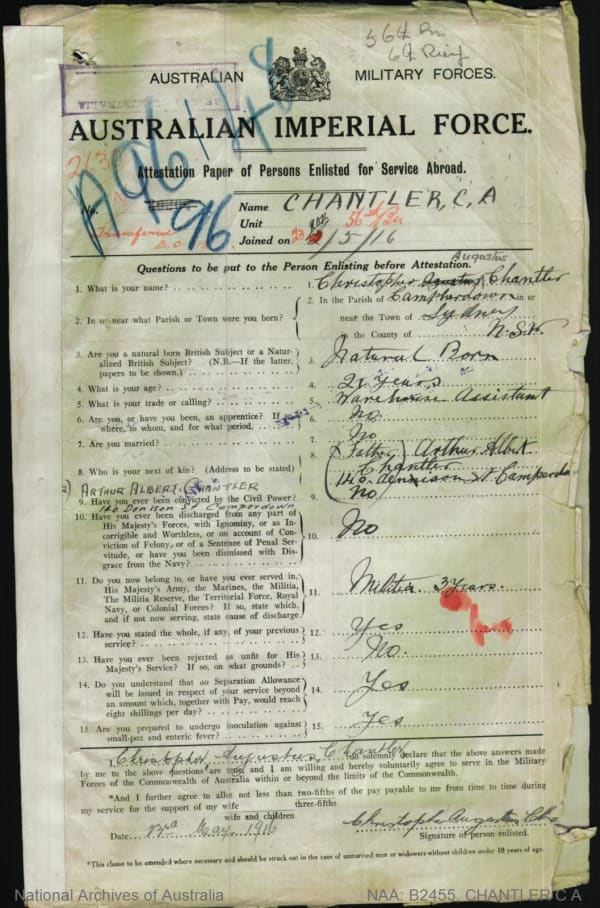 56th Bn
AUSTRALIAN MILITARY FORCES.
AUSTRALIAN IMPERIAL FORCE.
A96148
Attestation Paper of Persons Enlisted for Service Abroad.
No. 96
Name CHANTLER, C, A
Unit 56th Bn
Joined on 2/5/16
Transferred
Questions to be put to the Person Enlisting before Attestation.
Augustus
1. What is your name? 1. Christopher Agustus Chantler
2. In or near what Parish or Town were you born? 2. In the Parish of Campherdown in or
near the Town of Sydney
in the County of N.S.W.
3. Are you a natural born British Subject or a Natu-
ralized British Subject? (N.B.—If the latter,
papers to be shown.) 3. Natural Born
4. What is your age? 4. 21 years
5. What is your trade or calling? 5. Warehouse Assistant
6. Are you, or have you been, an apprentice? If so,
where, to whom, and for what period 6. No
7. Are you married? 7. No
8. Who is your next of kin? (Address to be stated) 8. (Father) Arthur Albert
Chantler
140 Dennison St Camperdo
2) ARTHUR ALBERT CHANTLER
140 Denison St Camperdown
9. Have you ever been convicted by the Civil Power? 9. No
10. Have you ever been discharged from any part of
His Majesty's Forces, with Ignominy, or as In-
corrigible and Worthless, or on account of Con-
viction of Felony, or of a Sentence of Penal Ser-
vitude, or have you been dismissed with Dis-
grace from the Navy? 10. No
11. Do you now belong to, or have you ever served in,
His Majesty's Army, the Marines, the Militia,
The Militia Reserve, the Territorial Force, Royal
Navy, or Colonial Forces? If so, state which,
and if not now serving, state cause of discharge 11. Militia 3 years.
12. Have you stated the whole, if any, of your previous
service? 12. Yes
13. Have you ever been rejected as unfit for His
Majesty's Service? If so, on what grounds? 13. No.
14. Do you understand that no Separation Allowance
will be issued in respect of your service beyond
an amount which, together with Pay, would reach
eight shillings per day? 14. Yes
15. Are you prepared to undergo inoculation against
small-pox and enteric fever? 15. Yes
I, Christopher Augustus Chantler do solemnly declare that the above answers made
by me to the above questions are true, and I am willing and hereby voluntarily agree to serve in the Military
Forces of the Commonwealth of Australia within or beyond the limits of the Commonwealth.
*And I further agree to allot not less than two-fifths of the pay payable to me from time to time during
three-fifths
my service for the support of my wife
wife and children
Date 23rd May 1916 Christopher Augustus Cha
Signature of person enlisted.
*This clause to be amended where necessary and should be struck out in the case of unmarried men or widowers without children under 18 years of age.
National Archives of Australia NAA: B2455, CHANTLER C A